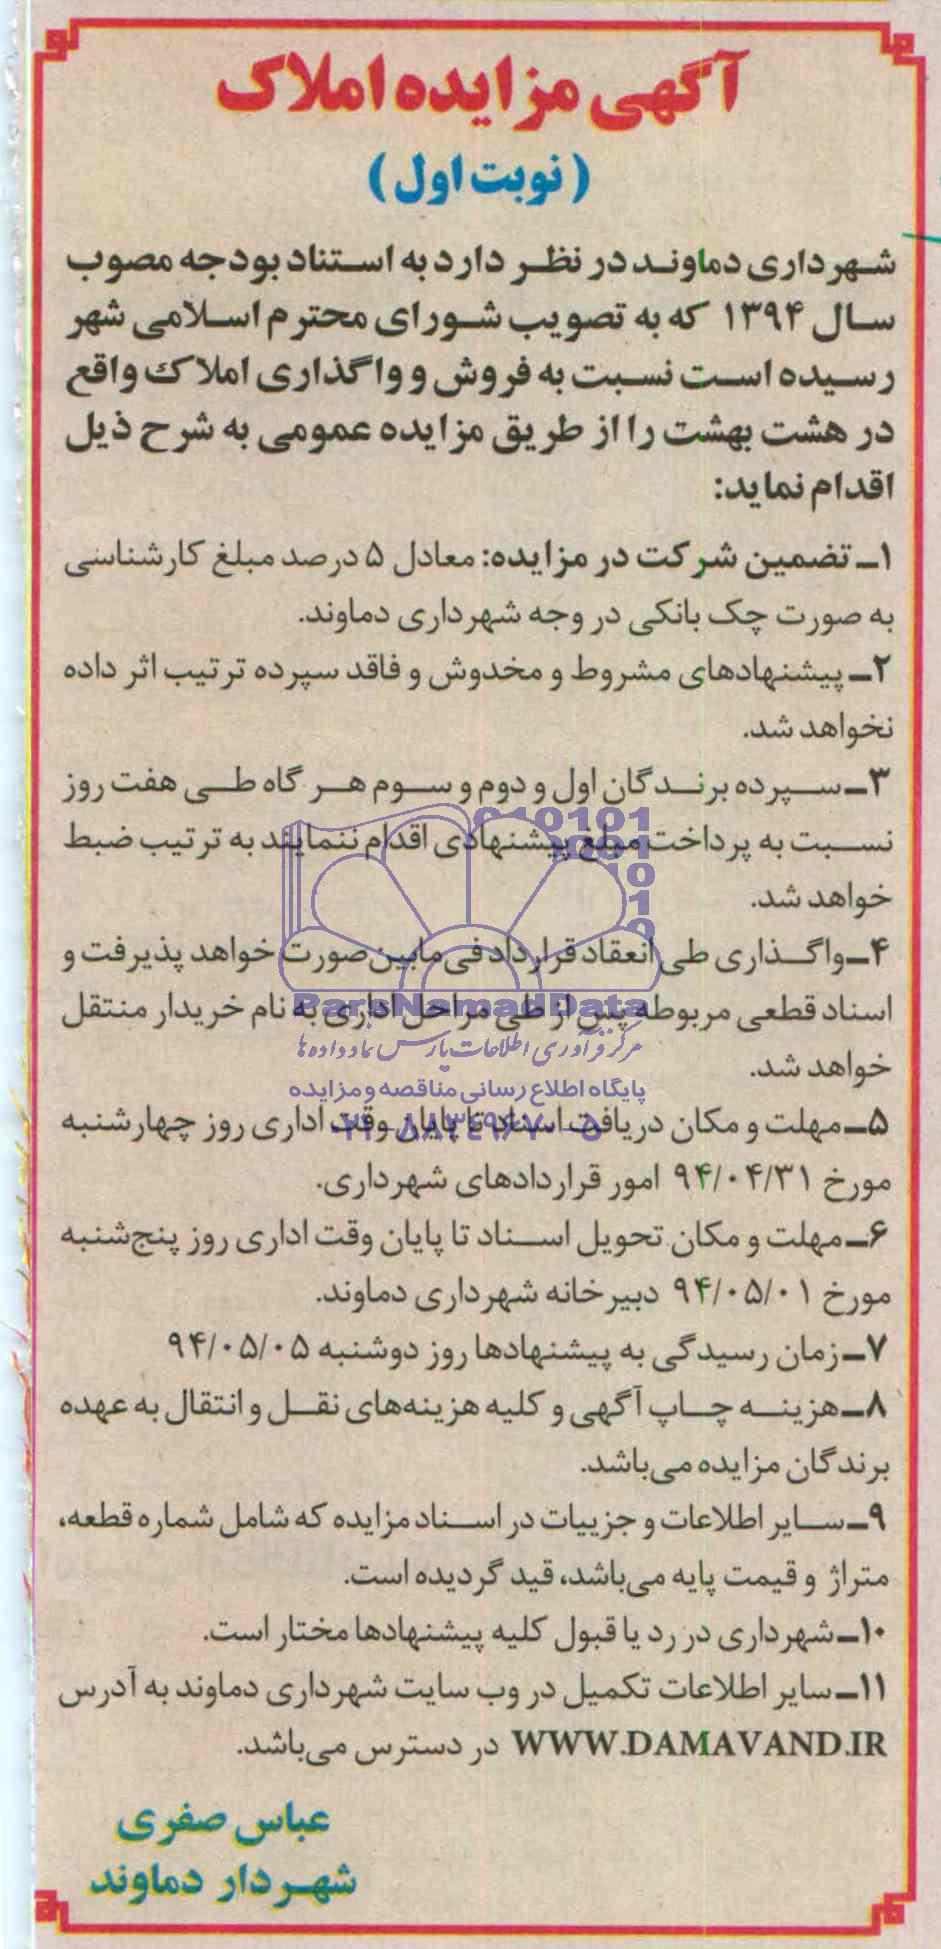 آگهی مزایده املاک
(نوبت اول)
شهرداری دماوند در نظر دارد به استناد بودجه مصوب
سال ۱۳۹۴ که به تصویب شورای محترم اسلامی شهر
رسیده است نسبت به فروش و واگذاری املاک واقع
در هشت بهشت را از طریق مزایده عمومی به شرح ذیل
اقدام نماید:
۱ـ تضمین شرکت در مزایده: معادل ۵ درصد مبلغ کارشناسی
به صورت چک بانکی در وجه شهرداری دماوند.
۲ـ پیشنهادهای مشروط و مخدوش و فاقد سپرده ترتیب اثر داده
نخواهد شد.
۳ـ سپرده برندگان اول و دوم و سوم هر گاه طی هفت روز
نسبت به پرداخت مبلغ پیشنهادی اقدام ننمایند به ترتیب ضبط
خواهد شد.
۴ـ واگذاری طی انعقاد قرارداد فی‌مابین صورت خواهد پذیرفت و
اسناد قطعی مربوطه پس از طی مراحل اداری به نام خریدار منتقل
خواهد شد.
ParsNamadData
مرکز فرآوری اطلاعات پارس نماد داده‌ها
پایگاه اطلاع رسانی مناقصه و مزایده
۰۲۱-۸۸۳۴۹۶۷۰-۵
۵ـ مهلت و مکان دریافت اسناد تا پایان وقت اداری روز چهارشنبه
مورخ ۹۴/۰۴/۳۱ امور قراردادهای شهرداری.
۶ـ مهلت و مکان تحویل اسناد تا پایان وقت اداری روز پنج‌شنبه
مورخ ۹۴/۰۵/۰۱ دبیرخانه شهرداری دماوند.
۷ـ زمان رسیدگی به پیشنهادها روز دوشنبه ۹۴/۰۵/۰۵
۸ـ هزینه چاپ آگهی و کلیه هزینه‌های نقل و انتقال به عهده
برندگان مزایده می‌باشد.
۹ـ سایر اطلاعات و جزییات در اسناد مزایده که شامل شماره قطعه،
متراژ و قیمت پایه می‌باشد، قید گردیده است.
۱۰ـ شهرداری در رد یا قبول کلیه پیشنهادها مختار است.
۱۱ـ سایر اطلاعات تکمیل در وب سایت شهرداری دماوند به آدرس
WWW.DAMAVAND.IR در دسترس می‌باشد.
عباس صفری
شهردار دماوند